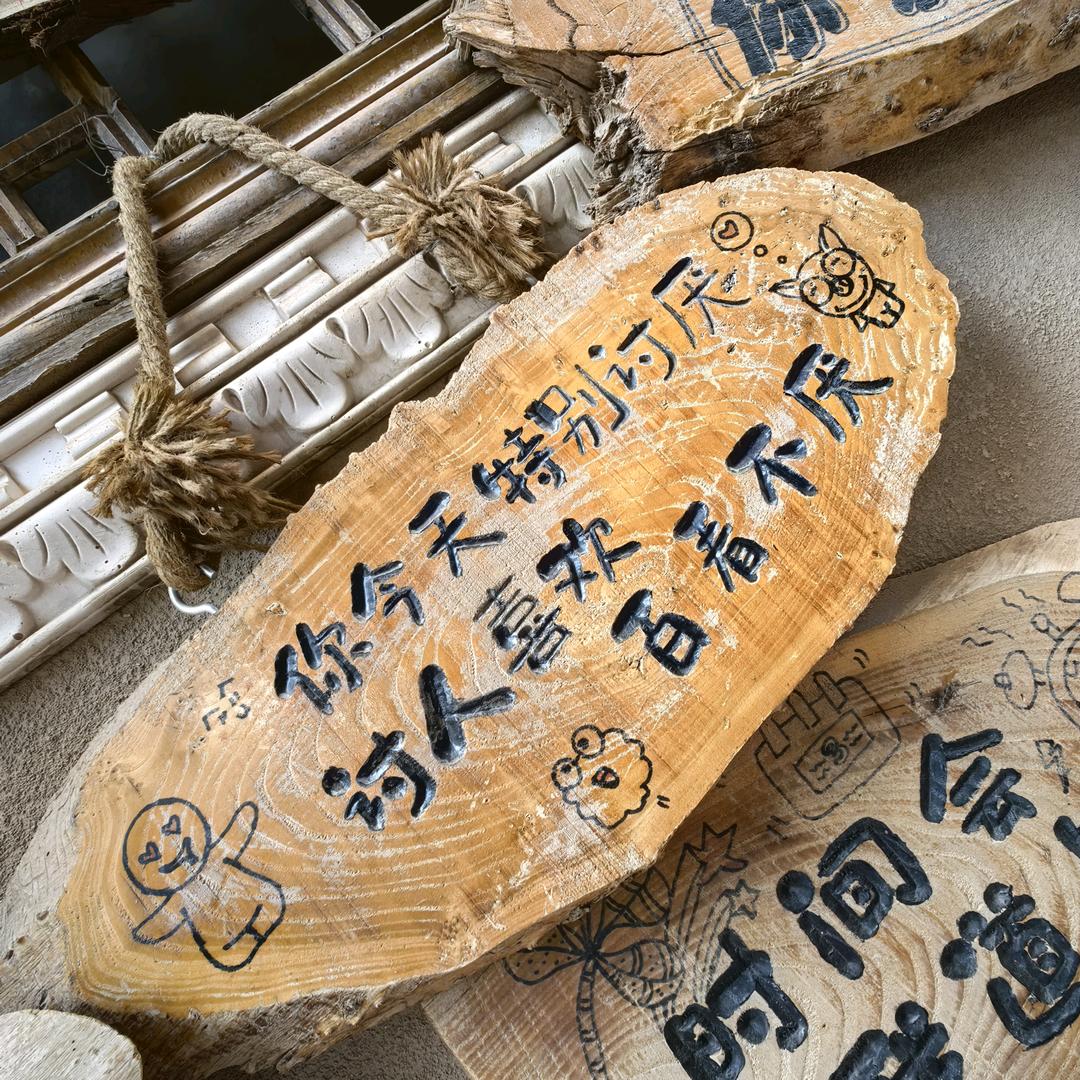 你
你今天特别讨厌
讨人喜欢
百看不厌
时间会
道